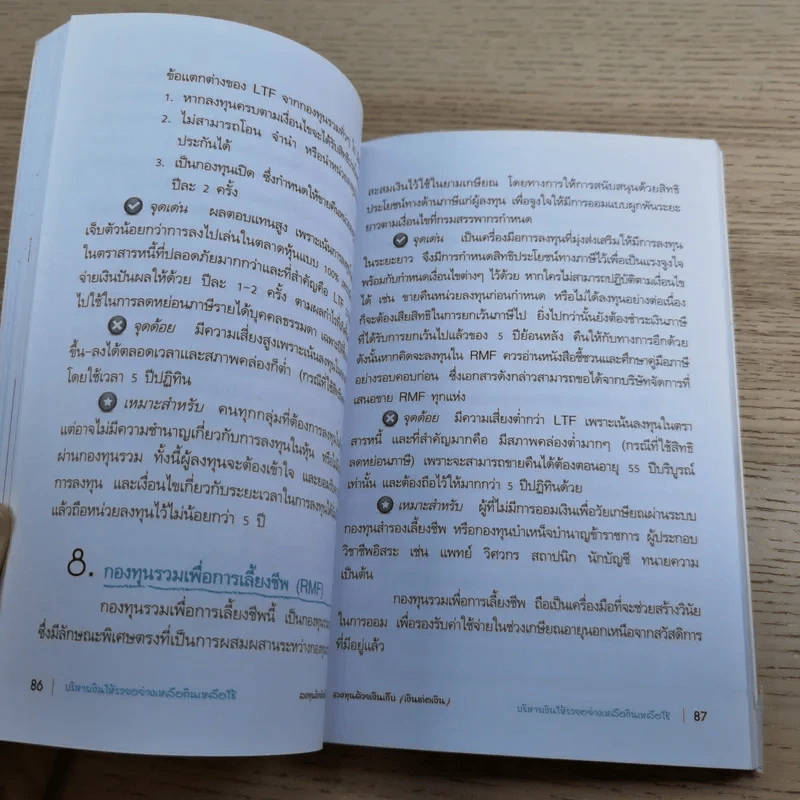 ข้อแตกต่างของ LTF จากกองทุนรวมทั่วๆ
1. หากลงทุนครบตามเงื่อนไขจะได้รับสิทธิ
2. ไม่สามารถโอน จำนำ หรือนำหน่วย
ประกันได้
3. เป็นกองทุนเปิด ซึ่งกำหนดให้ขายคืน
ปีละ 2 ครั้ง
จุดเด่น ผลตอบแทนสูง เพราะเน้นการลงทุน
เจ็บตัวน้อยกว่าการลงไปเล่นในตลาดหุ้นแบบ 100%
ในตราสารหนี้ที่ปลอดภัยมากกว่าและที่สำคัญคือ LTF
จ่ายเงินปันผลให้ด้วย ปีละ 1-2 ครั้ง ตามผลกำไร
ไปใช้ในการลดหย่อนภาษีรายได้บุคคลธรรมดา
จุดด้อย มีความเสี่ยงสูงเพราะเน้นลงทุน
ขึ้น-ลงได้ตลอดเวลาและสภาพคล่องก็ต่ำ (กรณีที่ใช้สิทธิ
โดยใช้เวลา 5 ปีปฏิทิน
เหมาะสำหรับ คนทุกกลุ่มที่ต้องการลงทุน
แต่อาจไม่มีความชำนาญเกี่ยวกับการลงทุนในหุ้น หรือ
ผ่านกองทุนรวม ทั้งนี้ผู้ลงทุนจะต้องเข้าใจ และยอมรับ
การลงทุน และเงื่อนไขเกี่ยวกับระยะเวลาในการลงทุนได้
แล้วถือหน่วยลงทุนไว้ไม่น้อยกว่า 5 ปี
8. กองทุนรวมเพื่อการเลี้ยงชีพ (RMF)
กองทุนรวมเพื่อการเลี้ยงชีพนี้ เป็นกองทุนรวม
ซึ่งมีลักษณะพิเศษตรงที่เป็นการผสมผสานระหว่างกองทุน
86 | บริหารเงินให้รวยอย่างเหลือกินเหลือใช้
สะสมเงินไว้ใช้ในยามเกษียณ โดยทางการให้การสนับสนุนด้วยสิทธิ
ประโยชน์ทางด้านภาษีแก่ผู้ลงทุน เพื่อจูงใจให้มีการออมแบบผูกพันระยะ
ยาวตามเงื่อนไขที่กรมสรรพากรกำหนด
จุดเด่น เป็นเครื่องมือการลงทุนที่มุ่งส่งเสริมให้มีการลงทุน
ในระยะยาว จึงมีการกำหนดสิทธิประโยชน์ทางภาษีไว้เพื่อเป็นแรงจูงใจ
พร้อมกับกำหนดเงื่อนไขต่างๆ ไว้ด้วย หากใครไม่สามารถปฏิบัติตามเงื่อนไข
ได้ เช่น ขายคืนหน่วยลงทุนก่อนกำหนด หรือไม่ได้ลงทุนอย่างต่อเนื่อง
ก็จะต้องเสียสิทธิในการยกเว้นภาษีไป ยิ่งไปกว่านั้นยังต้องชำระเงินภาษี
ที่ได้รับการยกเว้นไปแล้วของ 5 ปีย้อนหลัง คืนให้กับทางการอีกด้วย
ดังนั้นหากคิดจะลงทุนใน RMF ควรอ่านหนังสือชี้ชวนและศึกษาคู่มือภาษี
อย่างรอบคอบก่อน ซึ่งเอกสารดังกล่าวสามารถขอได้จากบริษัทจัดการที่
เสนอขาย RMF ทุกแห่ง
จุดด้อย มีความเสี่ยงต่ำกว่า LTF เพราะเน้นลงทุนในตรา
สารหนี้ และที่สำคัญมากคือ มีสภาพคล่องต่ำมากๆ (กรณีที่ใช้สิทธิ
ลดหย่อนภาษี) เพราะจะสามารถขายคืนได้ต้องตอนอายุ 55 ปีบริบูรณ์
เท่านั้น และต้องถือไว้ให้มากกว่า 5 ปีปฏิทินด้วย
เหมาะสำหรับ ผู้ที่ไม่มีการออมเงินเพื่อวัยเกษียณผ่านระบบ
กองทุนสำรองเลี้ยงชีพ หรือกองทุนบำเหน็จบำนาญข้าราชการ ผู้ประกอบ
วิชาชีพอิสระ เช่น แพทย์ วิศวกร สถาปนิก นักบัญชี ทนายความ
เป็นต้น
กองทุนรวมเพื่อการเลี้ยงชีพ ถือเป็นเครื่องมือที่จะช่วยสร้างวินัย
ในการออม เพื่อรองรับค่าใช้จ่ายในช่วงเกษียณอายุนอกเหนือจากสวัสดิการ
ที่มีอยู่แล้ว
ลงทุนด้วยเงินเก็บ (เงินต่อเงิน)
บริหารเงินให้รวยอย่างเหลือกินเหลือใช้ | 87